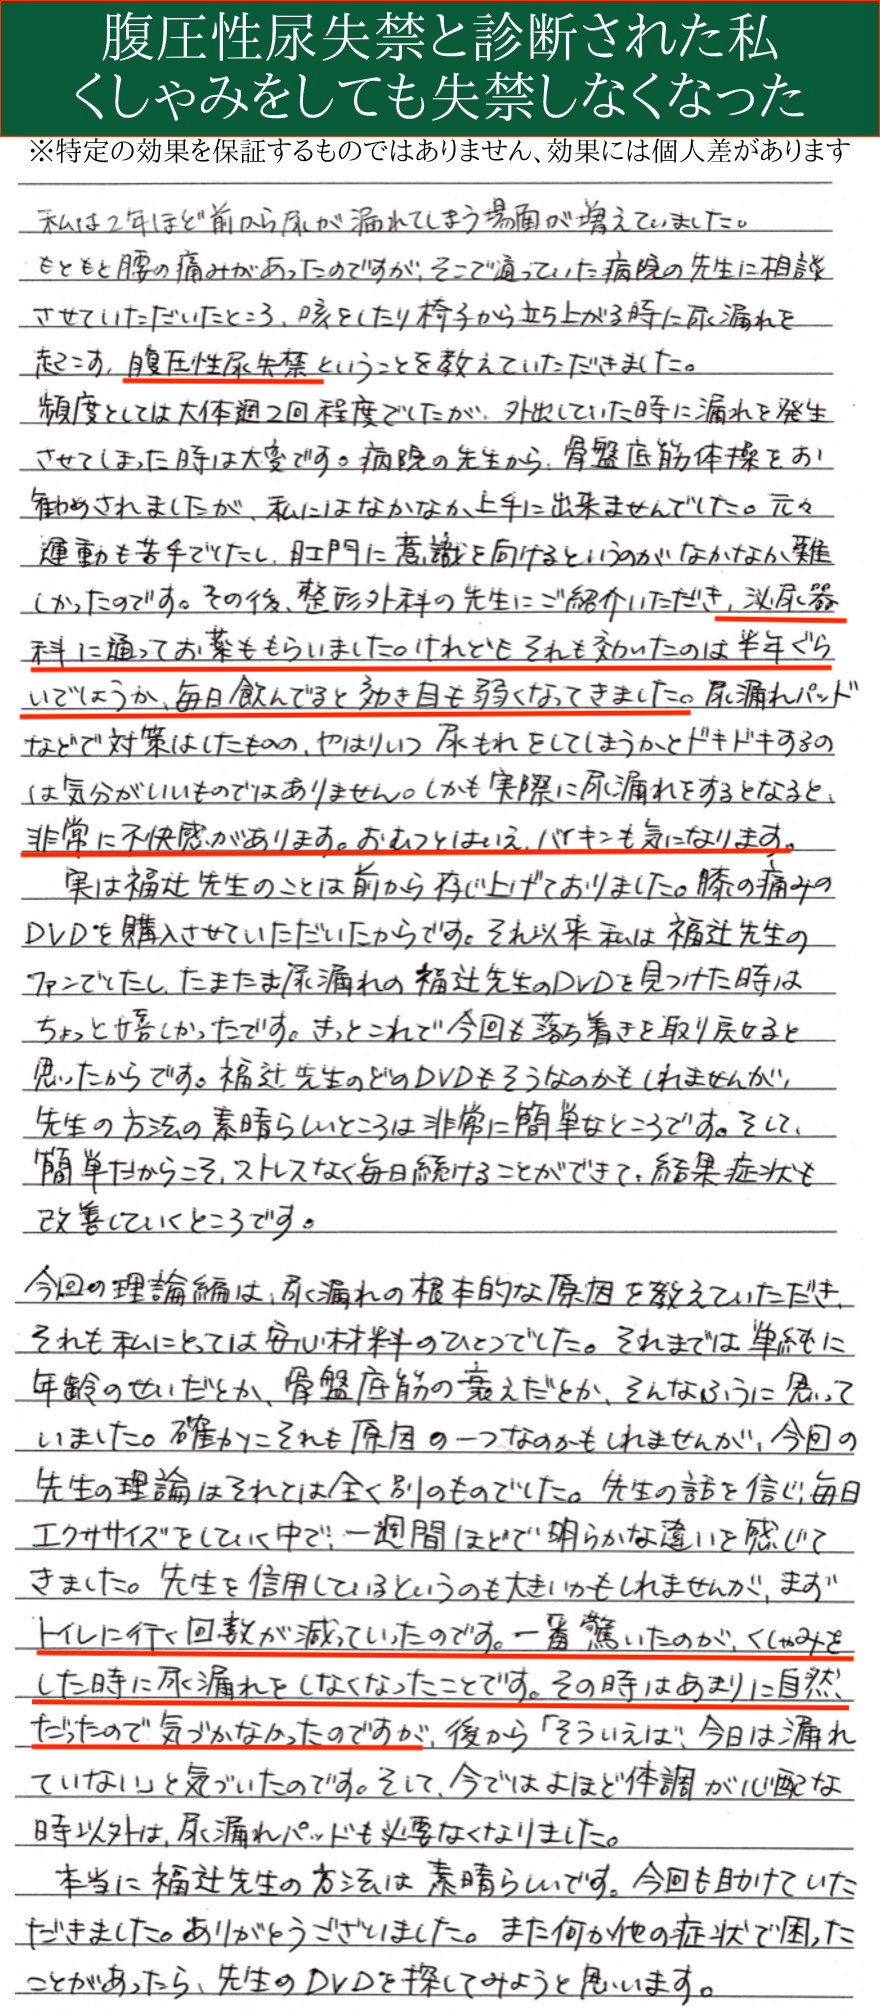 腹圧性尿失禁と診断された私
くしゃみをしても失禁しなくなった
※特定の効果を保証するものではありません、効果には個人差があります
私は2年ほど前から尿が漏れてしまう場面が増えていました。
もともと腰の痛みがあったのですが、そこで通っていた病院の先生に相談
させていただいたところ、咳をしたり椅子から立ち上がる時に尿漏れを
起こす、腹圧性尿失禁ということを教えていただきました。
頻度としては大体週2回程度でしたが、外出していた時に漏れを発生
させてしまった時は大変です。病院の先生から、骨盤底筋体操をお
勧めされましたが、私にはなかなか上手に出来ませんでした。元々
運動も苦手でしたし、肛門に意識を向けるというのがなかなか難
しかったのです。その後、整形外科の先生にご紹介いただき、泌尿器
科に通ってお薬ももらいました。けれどもそれも効いたのは半年ぐら
いでしょうか、毎日飲んでると効き目も弱くなってきました。尿漏れパッド
などで対策はしたものの、やはりいつ尿もれをしてしまうかとドキドキするの
は気分がいいものではありません。しかも実際に尿漏れをするとなると、
非常に不快感があります。おむつとはいえ、バイキンも気になります。
実は福辻先生のことは前から存じ上げておりました。膝の痛みの
DVDを購入させていただいたからです。それ以来私は福辻先生の
ファンでしたし、たまたま尿漏れの福辻先生のDVDを見つけた時は
ちょっと嬉しかったです。きっとこれで今回も落ち着きを取り戻せると
思ったからです。福辻先生のどのDVDもそうなのかもしれませんが、
先生の方法の素晴らしいところは非常に簡単なところです。そして、
簡単だからこそ、ストレスなく毎日続けることができて、結果症状も
改善していくところです。
今回の理論編は、尿漏れの根本的な原因を教えていただき、
それも私にとっては安心材料のひとつでした。それまでは単純に
年齢のせいだとか、骨盤底筋の衰えだとか、そんなふうに思って
いました。確かにそれも原因の一つなのかもしれませんが、今回の
先生の理論はそれとは全く別のものでした。先生の話を信じ、毎日
エクササイズをしていく中で、一週間ほどで明らかな違いを感じて
きました。先生を信用しているというのも大きいかもしれませんが、まず
トイレに行く回数が減っていったのです。一番驚いたのが、くしゃみを
した時に尿漏れをしなくなったことです。その時はあまりに自然
だったので気づかなかったのですが、後から「そういえば、今日は漏れ
ていない」と気づいたのです。そして、今ではよほど体調が心配な
時以外は、尿漏れパッドも必要なくなりました。
本当に福辻先生の方法は素晴らしいです。今回も助けていた
だきました。ありがとうございました。また何か他の症状で困った
ことがあったら、先生のDVDを探してみようと思います。